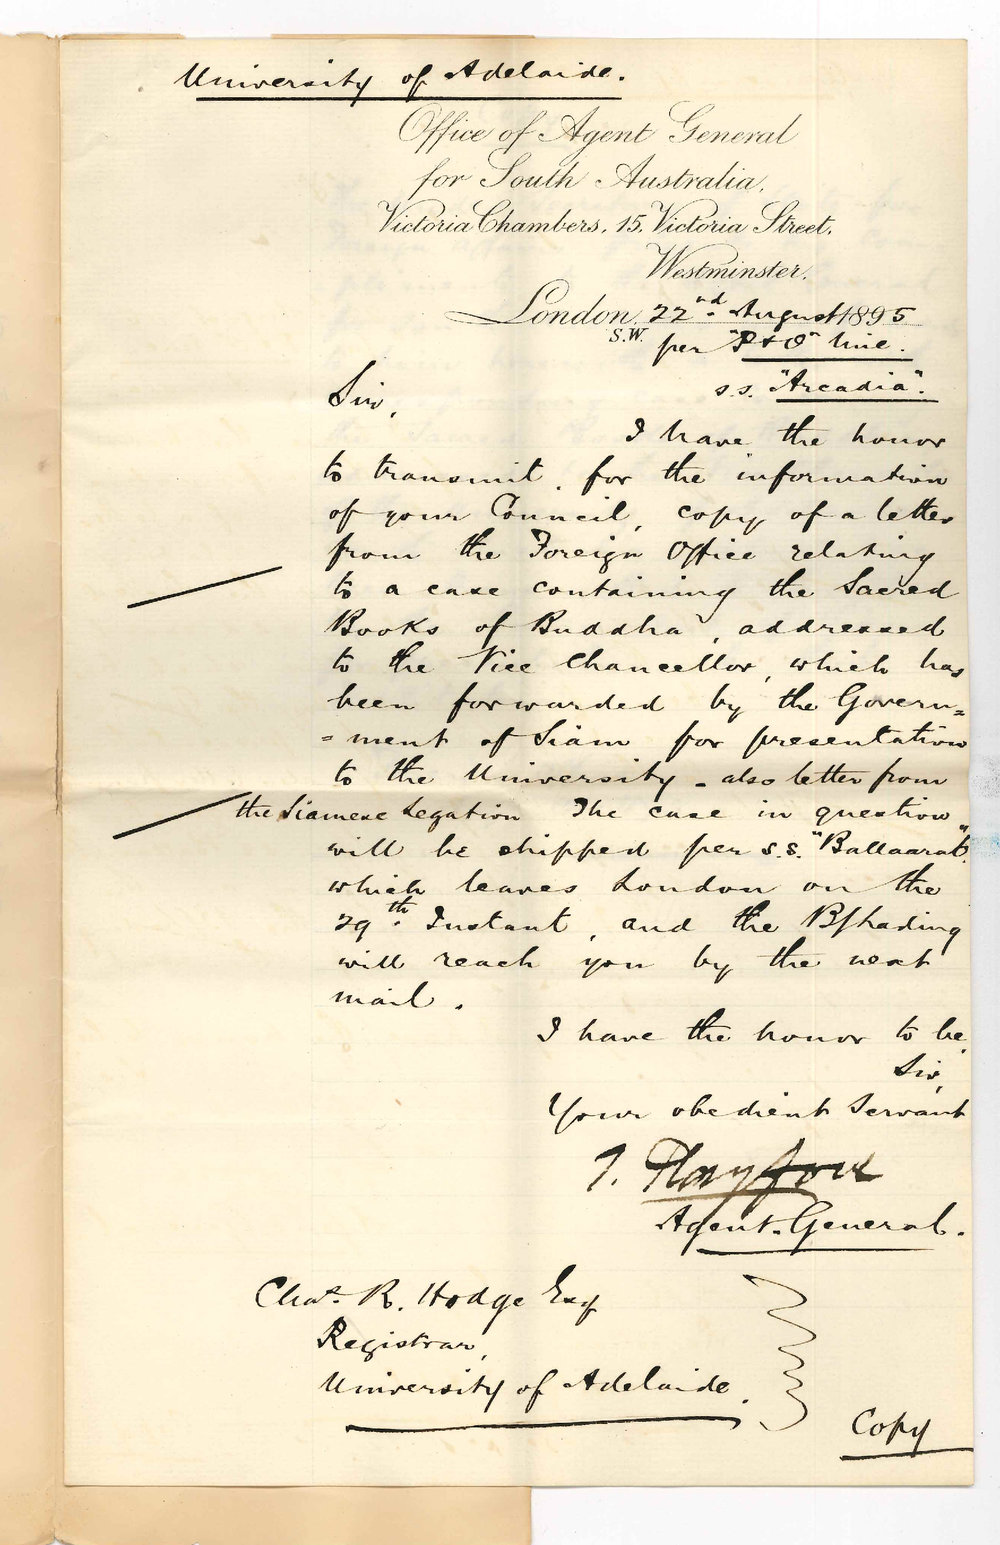 University of Adelaide.
Office of Agent General
for South Australia,
Victoria Chambers, 15, Victoria Street,
Westminster.
London, 22nd. August 1895
S.W.
per "P & O" Line.
s.s. "Arcadia".
Sir,
I have the honor
to transmit, for the information
of your Council, copy of a letter
from the Foreign Office relating
to a case containing the Sacred
Books of Buddha, addressed
to the Vice Chancellor, which has
been forwarded by the Govern=
=ment of Siam for presentation
to the University - also letter from
the Siamese Legation The case in question
will be shipped per s.s. "Ballaarat"
which leaves London on the
29th. Instant, and the B/Lading
will reach you by the next
mail.
I have the honor to be,
Sir,
Your obedient Servant
T. Playford
Agent-General.
Chas. R. Hodge Esq
Registrar,
University of Adelaide.
Copy